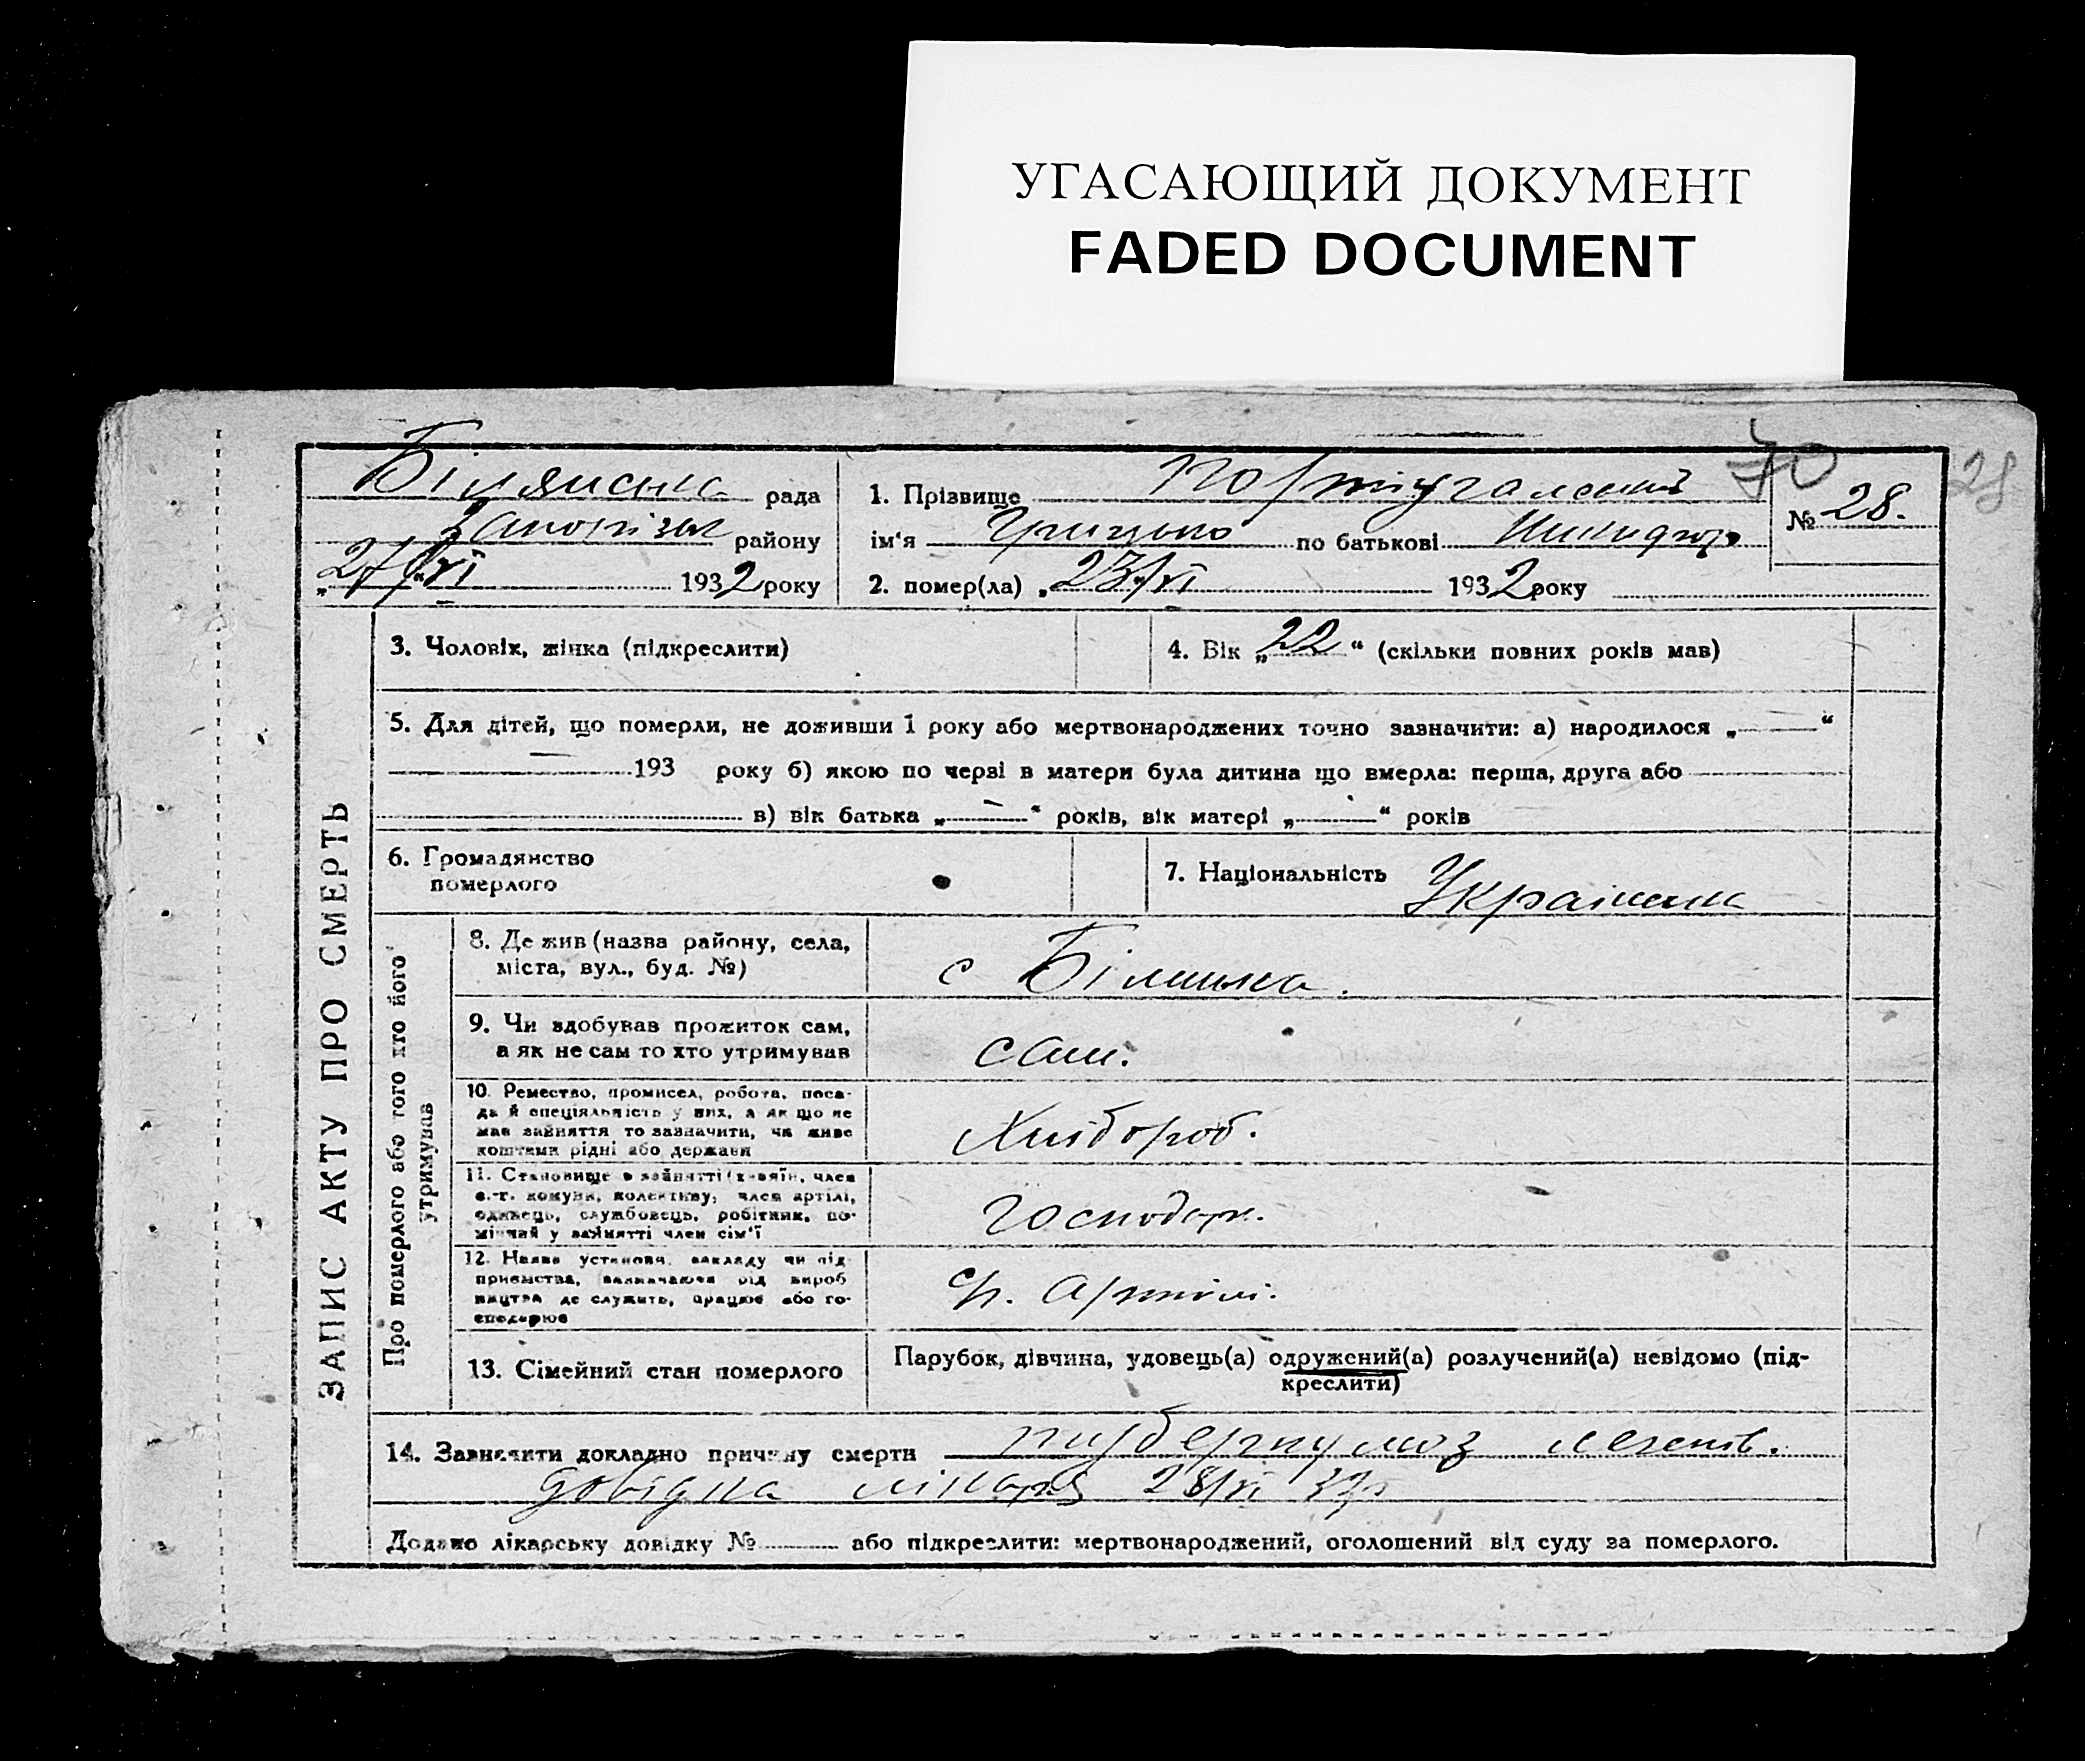 УГАСАЮЩИЙ ДОКУМЕНТ
FADED DOCUMENT
70
28
Білянська рада
Запорізьк району
„27/VI 1932 року
1. Прізвище Португальский
ім'я Грицько по батькові
2. помер(ла) „23/VI 1932 року
№ 28.
ЗАПИС АКТУ ПРО СМЕРТЬ
3. Чоловік, жінка (підкреслити)
4. Вік „22“ (скільки повних років мав)
5. Для дітей, що померли, не доживши 1 року або мертвонароджених точно зазначити: а) народилося „—“
193 року б) якою по черві в матери була дитина що вмерла: перша, друга або
в) вік батька „—“ років, вік матері „—“ років
6. Громадянство
померлого
7. Національність Українец
Про померлого або того хто його
утримував
8. Де жив (назва району, села,
міста, вул., буд. №)
с Біленька.
9. Чи здобував прожиток сам,
а як не сам то хто утримував
сам.
10. Ремество, промисел, робота, поса-
да й спеціяльність у них, а як що не
мав зайняття то зазначити, чи живе
коштами рідні або держави
Хлібороб.
11. Становище в зайнятті (хазяїн, член
с.-г. комуни, колективу, член артілі,
одинець, службовець, робітник, по-
мічний у зайнятті член сім'ї
Господар.
12. Назва установи, закладу чи під-
приємства, зазначаючи рід вироб
ництва де служить, працює або го-
сподарює
Чл. Артілі.
13. Сімейний стан померлого
Парубок, дівчина, удовець(а) одружений(а) розлучений(а) невідомо (під-
креслити)
14. Зазначити докладно причину смерти туберкульоз легенів.
довідка лікаря 28/VI 32р
Додано лікарську довідку № або підкреслити: мертвонароджений, оголошений від суду за померлого.